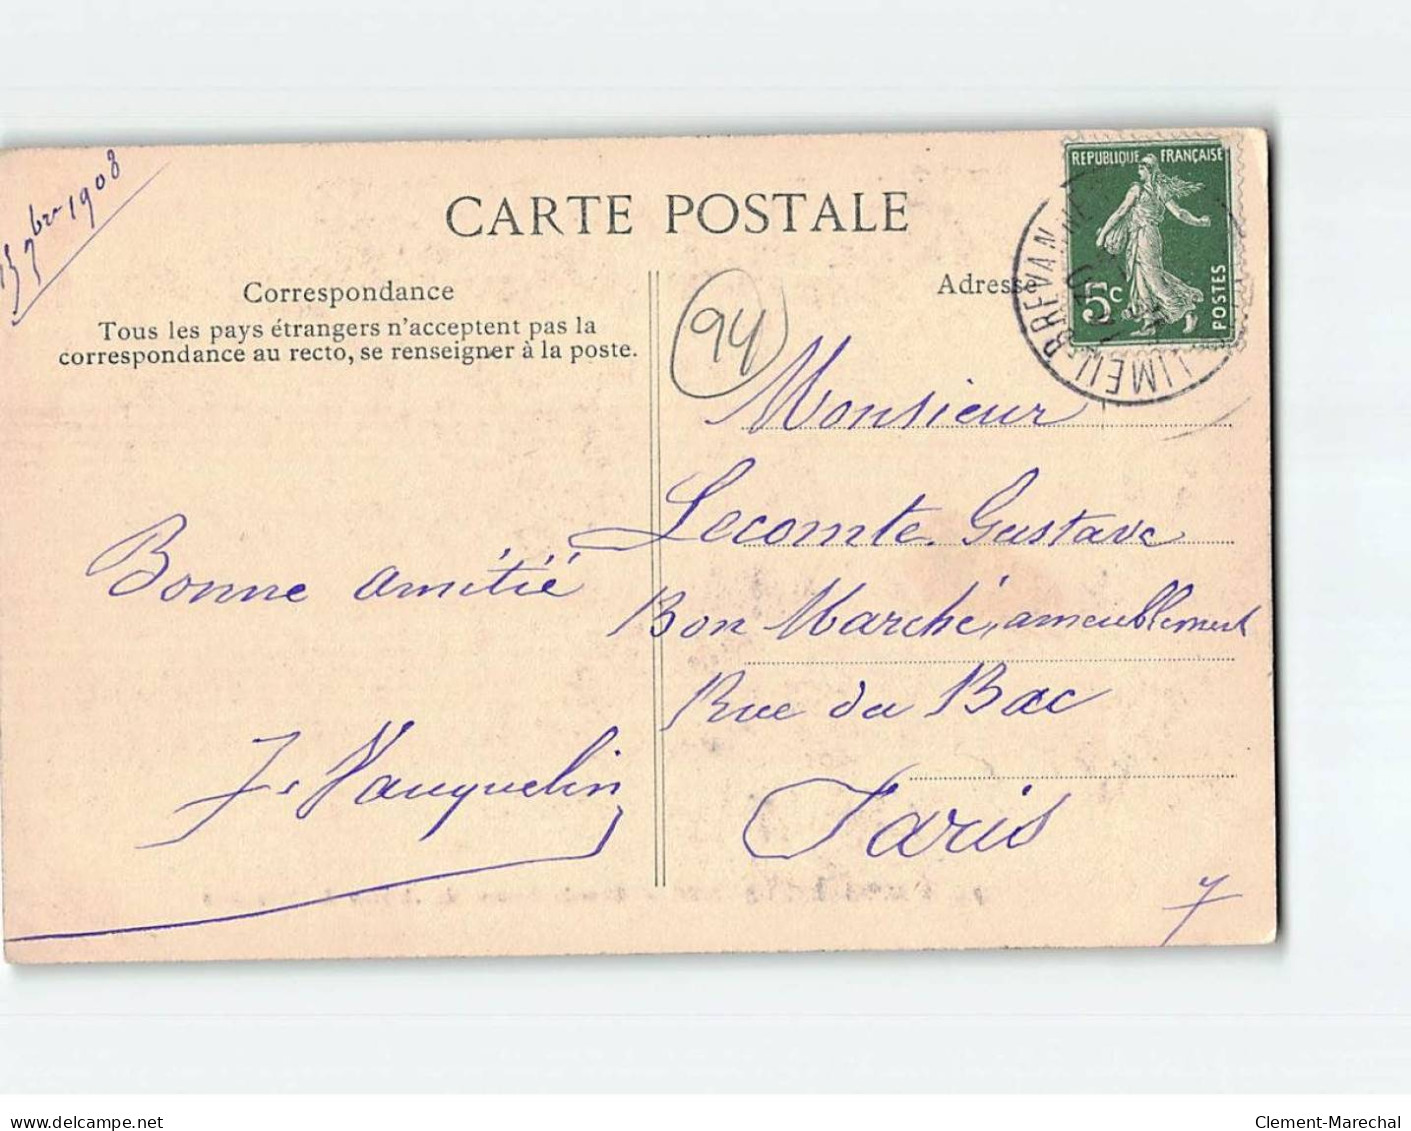 15 7bre 1908
CARTE POSTALE
Correspondance
Tous les pays étrangers n'acceptent pas la
correspondance au recto, se renseigner à la poste.
Bonne amitié
J. Vauquelin
94
Adresse
REPUBLIQUE FRANÇAISE
5c
POSTES
LIMEIL-BREVANNE
Monsieur
Lecomte Gustave
Bon Marché, ameublement
Rue du Bac
Paris
7
www.delcampe.net
Clement-Marechal